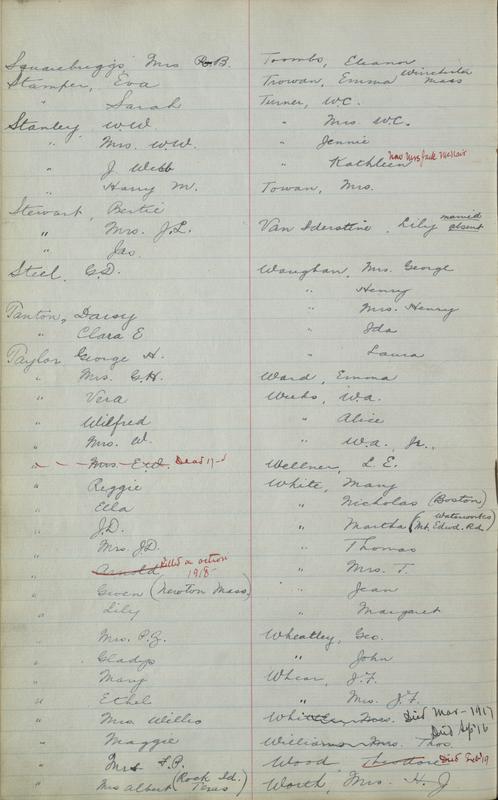 Squarebriggs Mrs R.B.
Stamper, Eva
" Sarah
Stanley W.W
" Mrs. W.W.
" J Webb
" Harry M.
Stewart, Bertie
" Mrs. J.L.
" Jas.
Steel. G.D.
Tanton, Daisy
" Clara E
Taylor George H.
" Mrs. G.H.
" Vera
" Wilfred
" Mrs. W.
" Mrs. Ewd. Dead
" Reggie
" Ella
" J.D.
" Mrs. J.D.
" Arnold Killed in action 1918
" Gwen (Newton Mass)
" Lily
" Mrs. P.Z.
" Gladys
" Mary
" Ethel
" Mrs. Willis
" Maggie
" Mrs F.P.
" Mrs Albert (Rock Id. Texas)
Toombs, Eleanor
Trowan, Emma Winchester Mass
Turner, W.C.
" Mrs. W.C.
" Jennie
" Kathleen now Mrs Jack McNair
Towan, Mrs.
Van Iderstine, Lily married absent
Vaughan, Mrs. George
" Henry
" Mrs. Henry
" Ida
" Laura
Ward, Emma
Weeks, W.a.
" Alice
" W.a. Jr.
Wellner, L. E.
White, Mary
" Nicholas (Boston)
" Martha (Waterworks Mt. Edwd. Rd.)
" Thomas
" Mrs. T.
" Jean
" Margaret
Wheatley, Geo.
" John
Whear, J.F.
" Mrs. J.F.
Died Mar-1917
Williams, Mrs. Thos. Died Sept 16
Wood Theodore Died Feb'19
Worth, Mrs. H. J